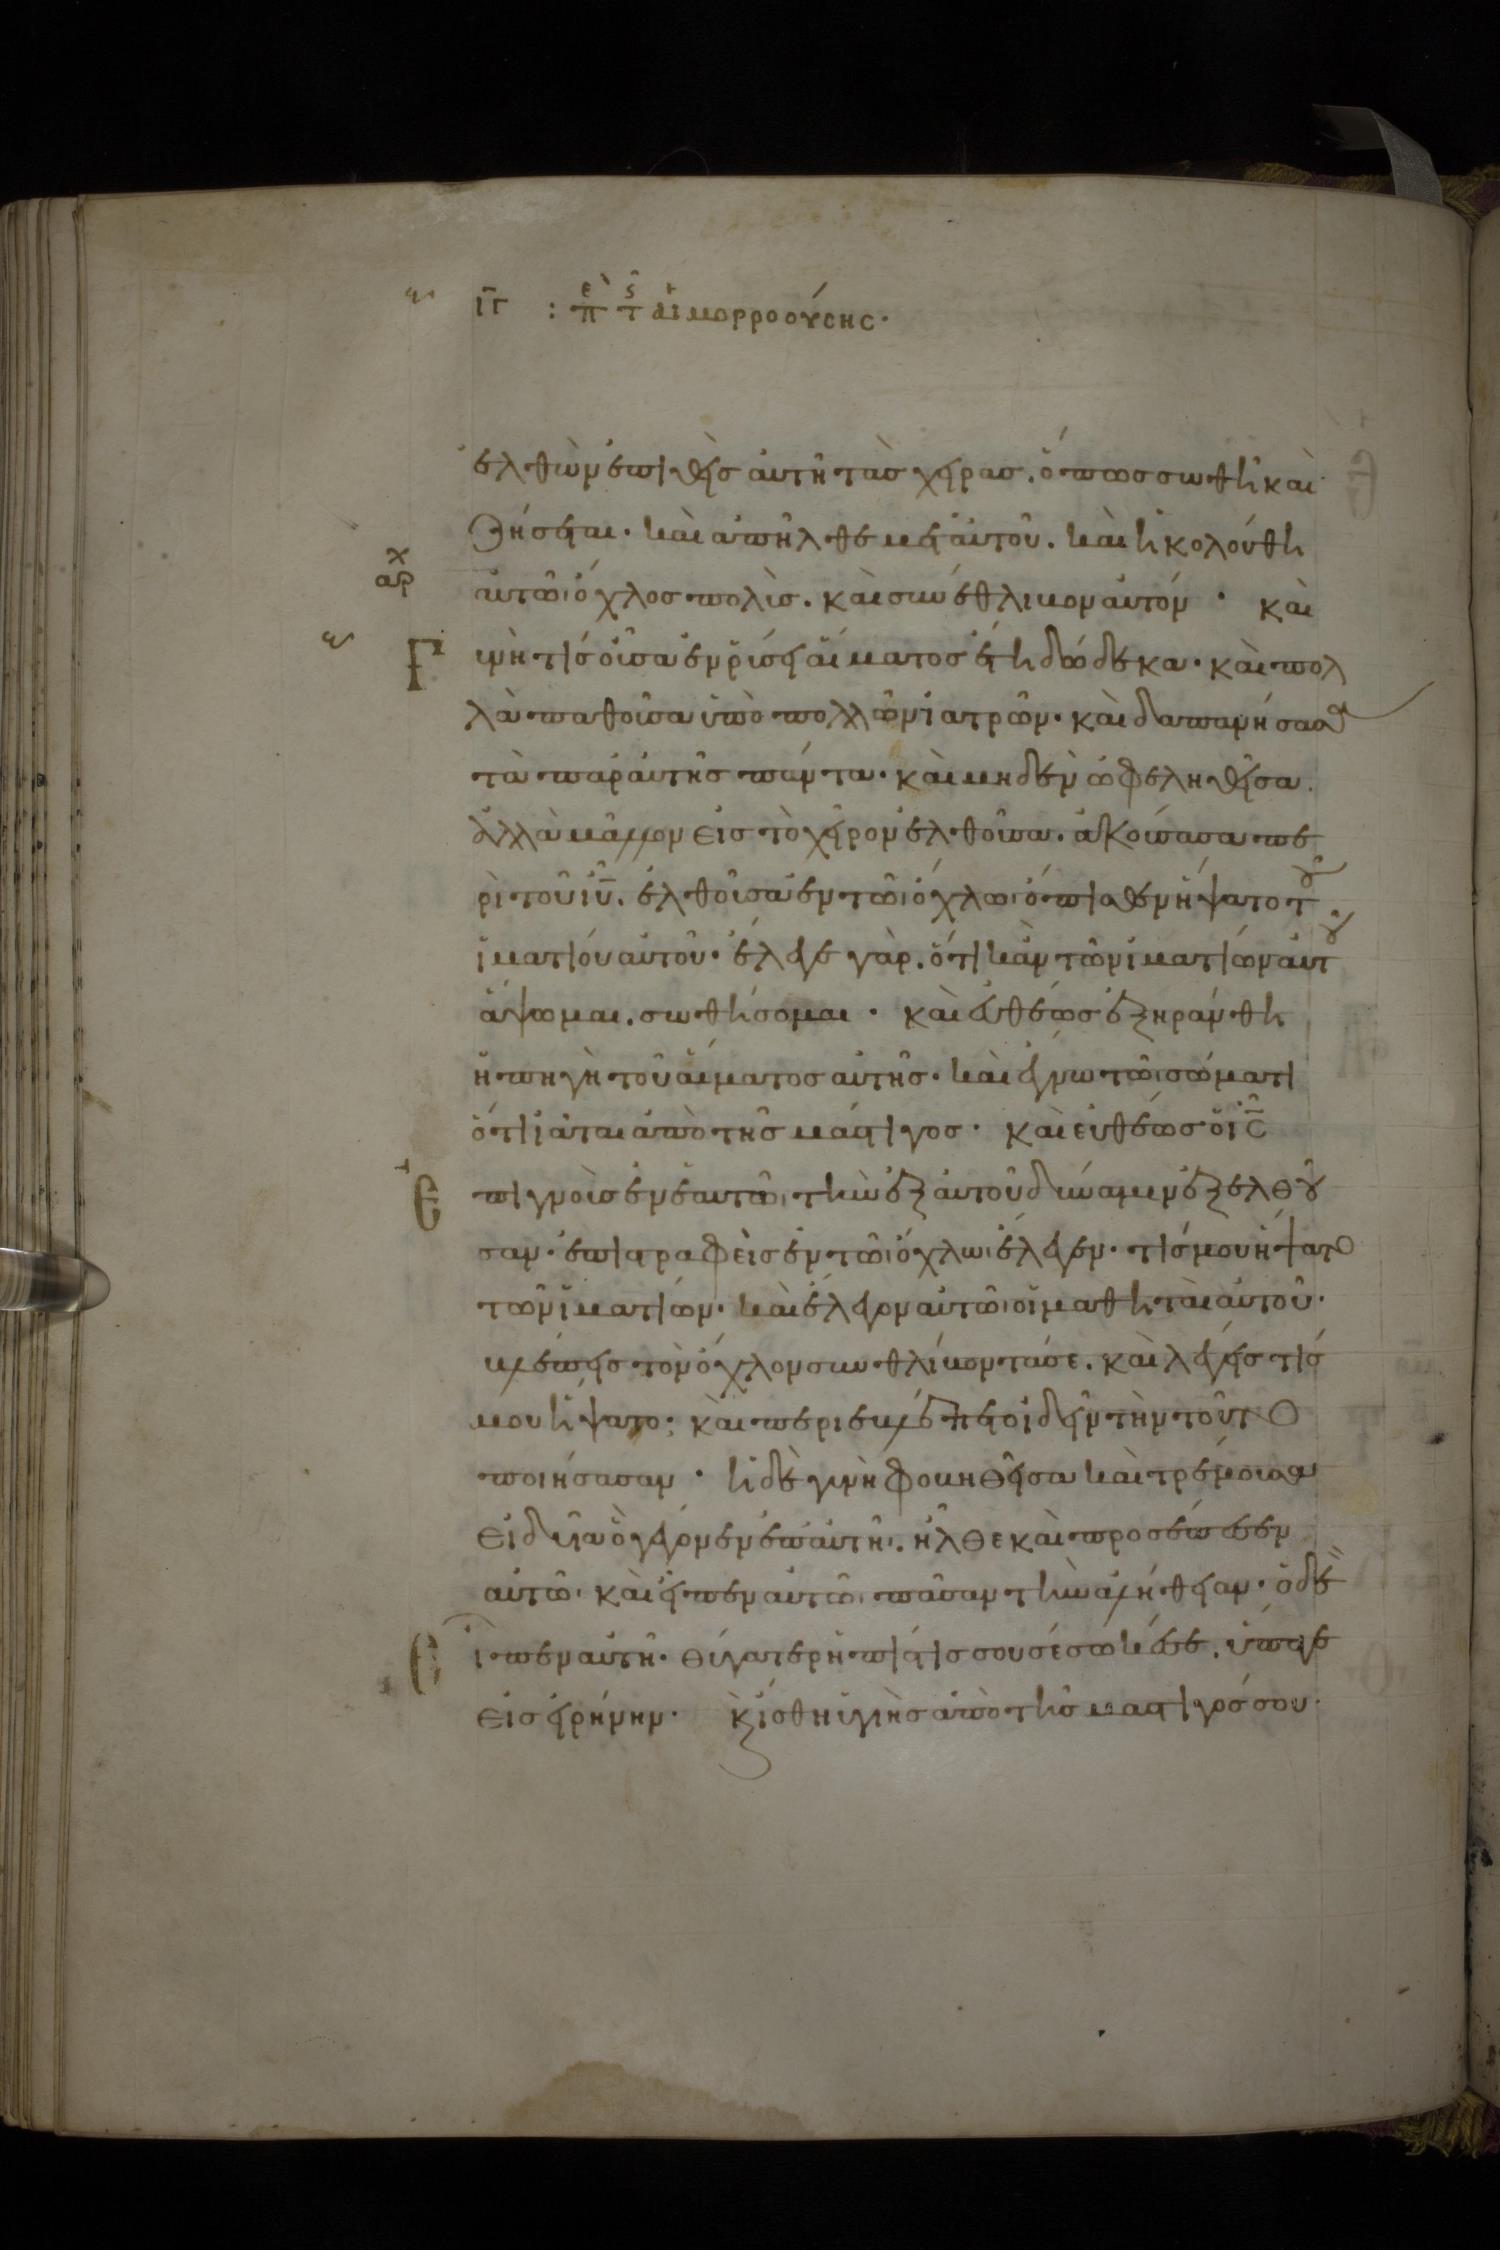 ιγ : πε τς αἱμορροούσης·
ἐλθὼν ἐπιθεὶς αὐτῆ τὰς χεῖρας. ὅπως σωθῆ καὶ
ζήσεται· καὶ ἀπῆλθε μετ αὐτοῦ. καὶ ἠκολούθη
αρχ
αὐτῶ ὄχλος πολὺς. καὶ συνέθλιβον αὐτόν · καὶ
Γυνὴ τὶς οὖσα ἐν ῥύσει αἵματος ἔτη δώδεκα· καὶ πολ
λὰ παθοῦσα ὑπὸ πολλῶν ἰατρῶν· καὶ δαπανήσασα
τὰ παρ αὐτῆς πάντα· καὶ μηδὲν ὠφεληθεῖσα.
ἀλλὰ μᾶλλον εἰς τὸ χεῖρον ἐλθοῦσα. ἀκούσασα πε
ρὶ τοῦ ιυ. ἐλθοῦσα ἐν τῶ ὄχλω ὄπισθεν ἥψατο τοῦ
ἱματίου αὐτοῦ· ἔλεγε γὰρ. ὅτι κἂν τῶν ἱματίων αὐτοῦ
ἅψωμαι. σωθήσομαι · καὶ εὐθέως ἐξηράνθη
ἡ πηγὴ τοῦ αἵματος αὐτῆς· καὶ ἔγνω τῶ σώματι
ὅτι ἴαται ἀπὸ τῆς μάστιγος· καὶ εὐθέως ὁ ις
Ἐπιγνοὺς ἐν ἑαυτῶ τὴν ἐξ αὐτοῦ δύναμιν ἐξελθοῦ
σαν· ἐπιστραφεὶς ἐν τῶ ὄχλω ἔλεγεν· τίς μου ἥψατο
τῶν ἱματίων· καὶ ἔλεγον αὐτῶ οἱ μαθηταὶ αὐτοῦ·
βλέπεις τὸν ὄχλον συνθλίβοντά σε. καὶ λέγεις τίς
μου ἥψατο; καὶ περιεβλέπετο ἰδεῖν τὴν τοῦτο
ποιήσασαν · ἡ δὲ γυνὴ φοβηθεῖσα καὶ τρέμουσα
εἰδυῖα ὃ γέγονεν ἐπ αὐτῆ. ἦλθε καὶ προσέπεσεν
αὐτῶ· καὶ εἶπεν αὐτῶ πᾶσαν τὴν ἀλήθειαν· ὁ δὲ
Εἶπεν αὐτῆ· θύγατερ ἡ πίστις σου σέσωκέ σε. ὕπαγε
εἰς εἰρήνην· κ ἴσθη ὑγιὴς ἀπὸ τῆς μάστιγός σου·